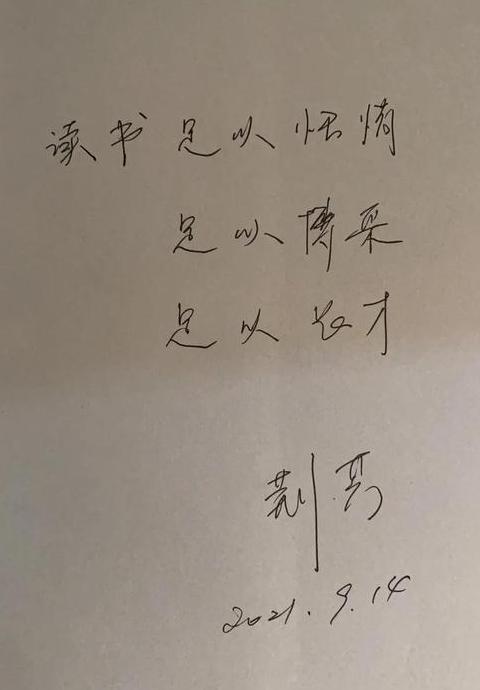 读书足以怡情
足以博采
足以长才
荆
2021.9.14